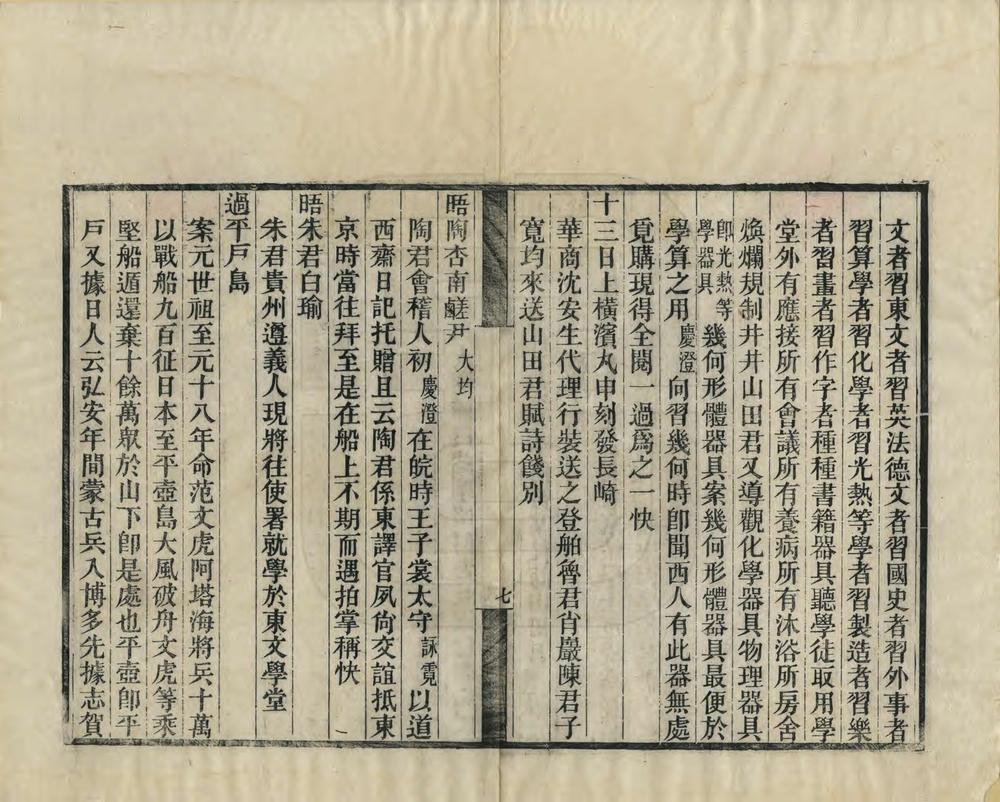 文者習東文者習英法德文者習國史者習外事者
習算學者習化學者習光熱等學者習製造者習樂
者習畫者習作字者種種書籍器具聽學徒取用學
堂外有應接所有會議所有養病所有沐浴所房舍
煥爛規制井井山田君又導觀化學器具物理器具
卽光熱等學器具幾何形體器具案幾何形體器具最便於
學算之用慶澄向習幾何時卽聞西人有此器無處
覓購現得全閱一過爲之一快
十三日上橫濱丸申刻發長崎
華商沈安生代理行裝送之登舶裔君肖巖陳君子
寬均來送山田君賦詩餞別
七
晤陶杏南鹺尹大均
陶君會稽人初慶澄在皖時王子裳太守詠霓以道
西齋日記托贈且云陶君係東譯官夙尙交誼抵東
京時當往拜至是在船上不期而遇拍掌稱快
晤朱君白瑜
朱君貴州遵義人現將往使署就學於東文學堂
過平戶島
案元世祖至元十八年命范文虎阿塔海將兵十萬
以戰船九百征日本至平壺島大風破舟文虎等乘
堅船遁還棄十餘萬眾於山下卽是處也平壺卽平
戶又據日人云弘安年間蒙古兵入博多先據志賀